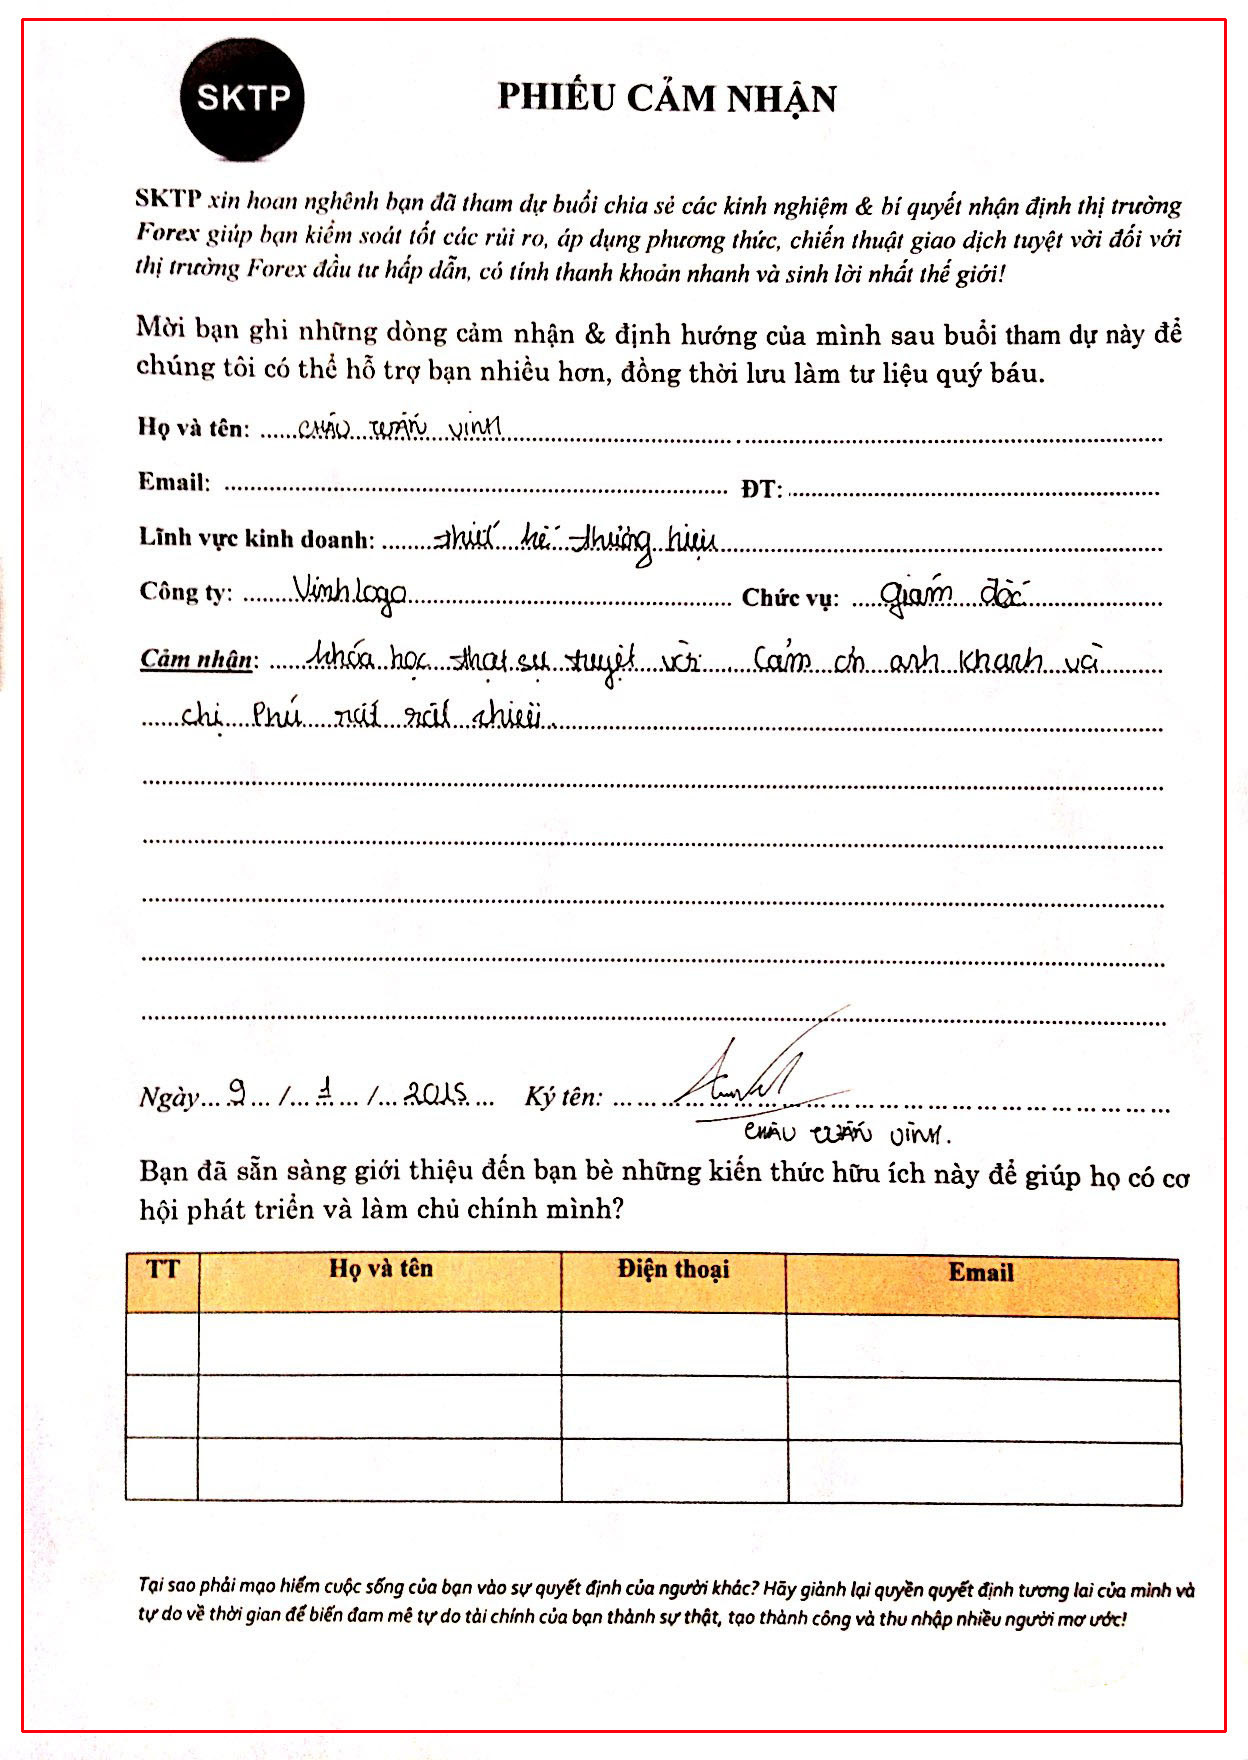 SKTP
PHIẾU CẢM NHẬN
SKTP xin hoan nghênh bạn đã tham dự buổi chia sẻ các kinh nghiệm & bí quyết nhận định thị trường
Forex giúp bạn kiểm soát tốt các rủi ro, áp dụng phương thức, chiến thuật giao dịch tuyệt vời đối với
thị trường Forex đầu tư hấp dẫn, có tính thanh khoản nhanh và sinh lời nhất thế giới!
Mời bạn ghi những dòng cảm nhận & định hướng của mình sau buổi tham dự này để
chúng tôi có thể hỗ trợ bạn nhiều hơn, đồng thời lưu làm tư liệu quý báu.
Họ và tên: CHÂU TUẤN VINH
Email: ĐT:
Lĩnh vực kinh doanh: thiết kế thương hiệu
Công ty: Vinhlogo Chức vụ: giám đốc
Cảm nhận: khóa học thật sự tuyệt vời Cảm ơn anh Khanh và
chị Phú rất rất nhiều.
Ngày 9 / 1 / 2015 Ký tên:
CHÂU TUẤN VINH.
Bạn đã sẵn sàng giới thiệu đến bạn bè những kiến thức hữu ích này để giúp họ có cơ
hội phát triển và làm chủ chính mình?
TT Họ và tên Điện thoại Email
Tại sao phải mạo hiểm cuộc sống của bạn vào sự quyết định của người khác? Hãy giành lại quyền quyết định tương lai của mình và
tự do về thời gian để biến đam mê tự do tài chính của bạn thành sự thật, tạo thành công và thu nhập nhiều người mơ ước!